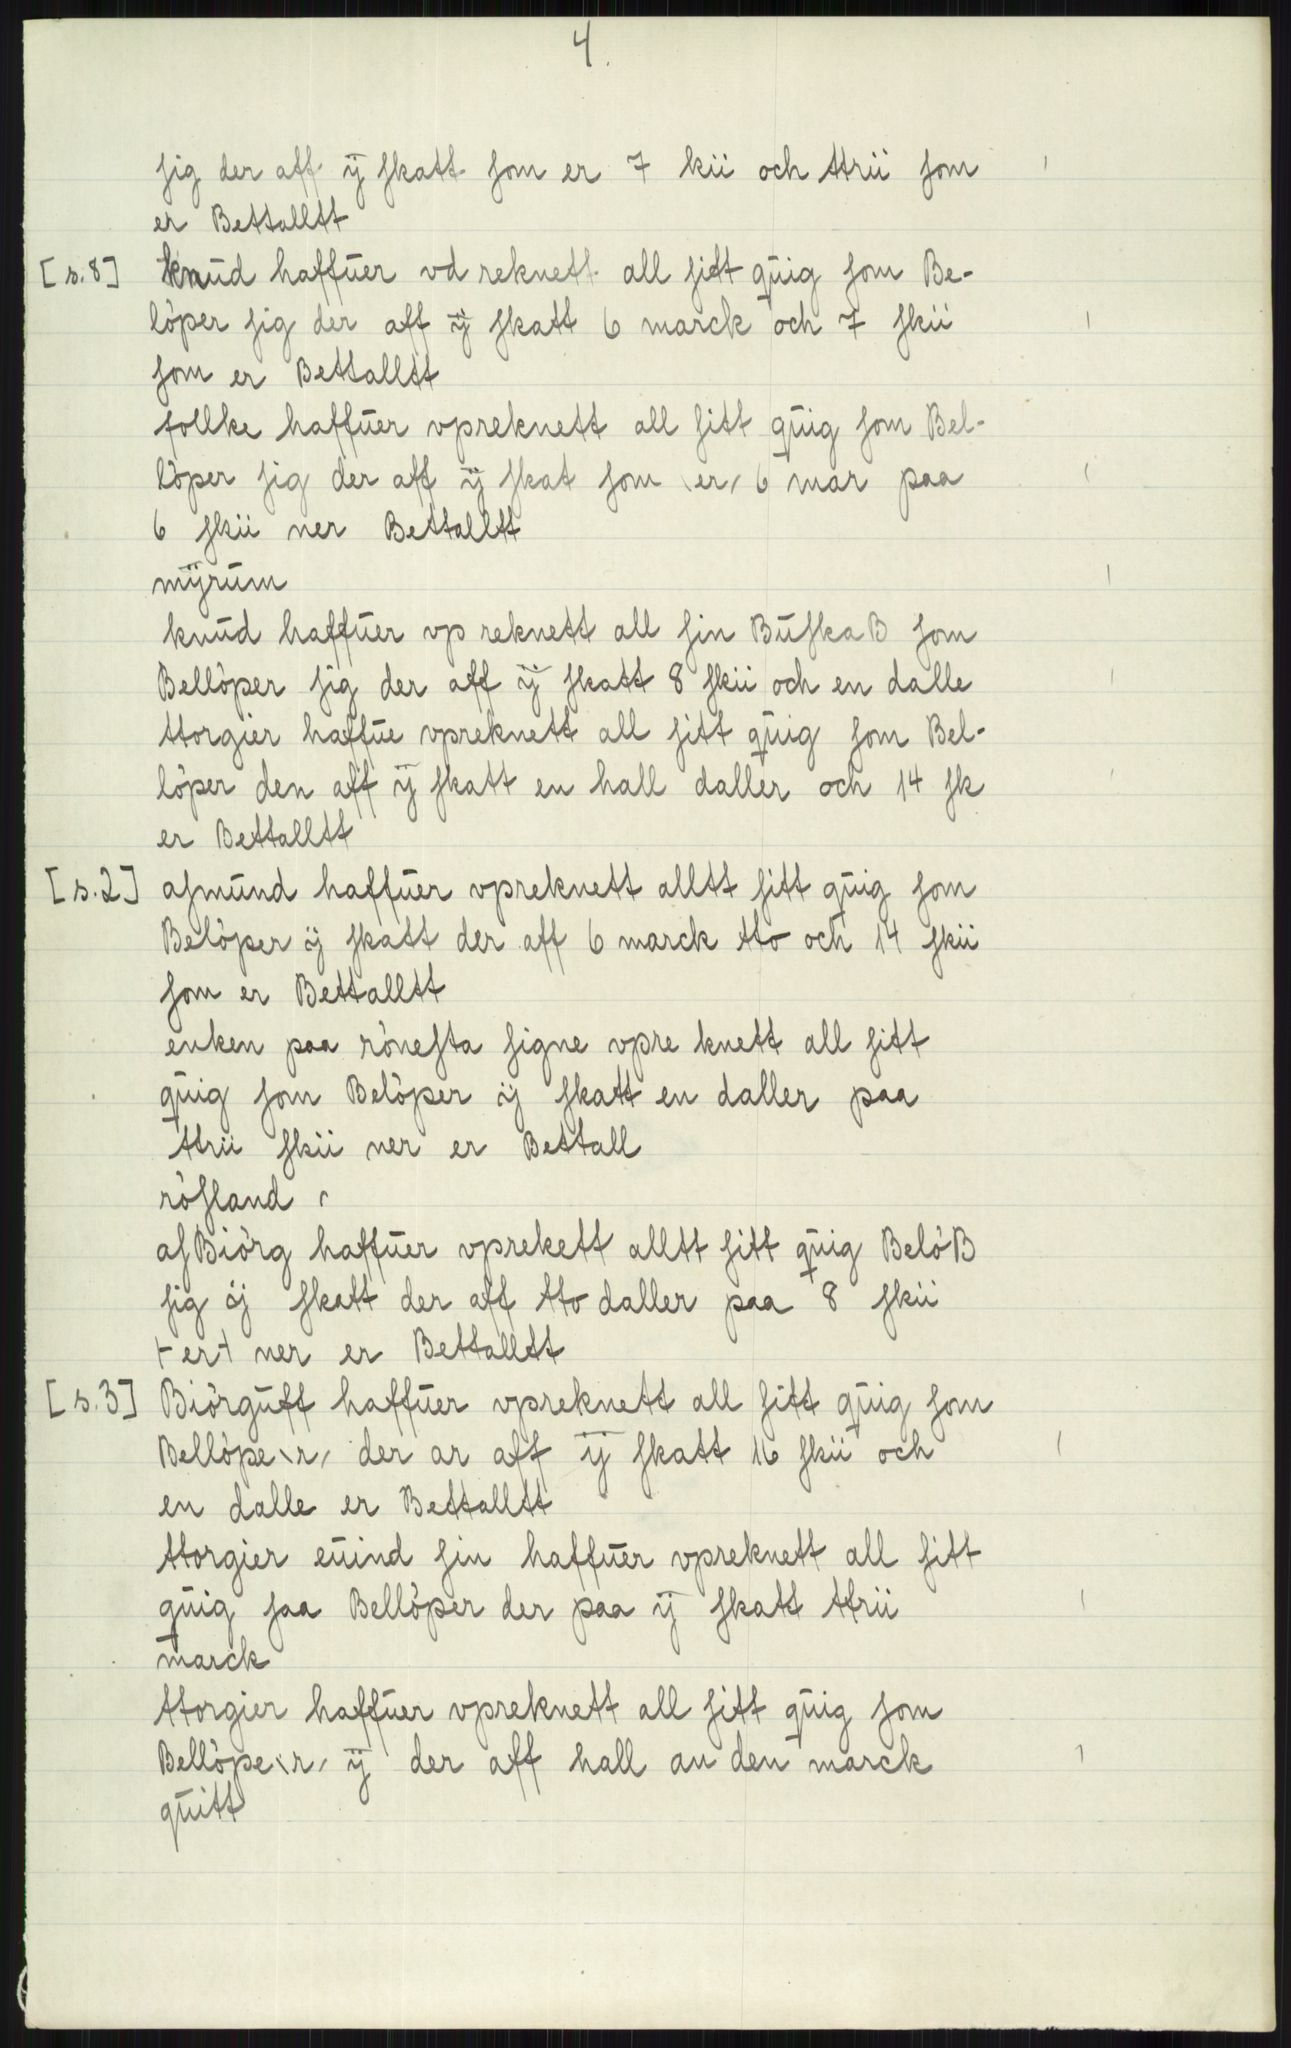 4.
sig der aff ÿ skatt som er 7 kii och ttrii som
er Bettalltt
[s.8] knūd haffūer vd reknett all sitt qūig som Be-
löper sig der aff ÿ skatt 6 marck och 7 skii
som er Bettalltt
follke haffūer vpreknett all sitt qūig som Bel-
löper sig der aff ÿ skat som \er/ 6 mar paa
6 skii ner Bettalltt
mÿrūm
knūd haffūer vp reknett all sin Būskab som
Bellöper sig der aff ÿ skatt 8 skii och en dalle
ttorgier haffūe vpreknett all sitt qūig som Bel-
löper den aff ÿ skatt en hall daller och 14 sk
er Bettalltt
[s.2] asmūnd haffūer vpreknett alltt sitt qūig som
Belöper ÿ skatt der aff 6 marck tto och 14 skii
som er Bettalltt
enken paa rönesta signe vpre knett all sitt
qūig som Belöper ÿ skatt en daller paa
ttrii skii ner er Bettall
rösland
asBiörg haffūer vprekett alltt sitt qūig BelöB
sig ÿ skatt der aff tto daller paa 8 skii
⊢er⊣ ner er Bettalltt
[s.3] Biörgūff haffūer vpreknett all sitt qūig som
Bellöpe\r/ der ar aff ÿ skatt 16 skii och
en dalle er Bettalltt
ttorgier eūind sin haffūer vpreknett all sitt
qūig saa Bellöper der paa ÿ skatt ttrii
marck
ttorgier haffūer vpreknett all sitt qūig som
Bellöpe\r/ ÿ der aff hall an den marck
qūitt